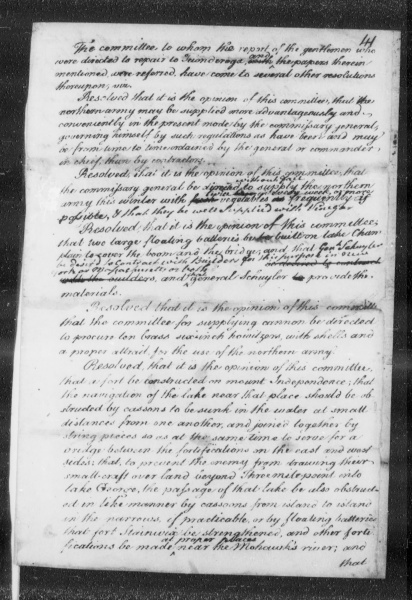 44
The committee to whom the report of the gentlemen who
were directed to repair to Ticonderoga, and the papers therein
mentioned were referred, have come to several other resolutions
thereupon, viz.
Resolved that it is the opinion of this committee, that the
northern army may be supplied more advantageously and
conveniently in the present mode by the commissary general
governing himself by such regulations as have been and may
be from time to time ordained by the general or commander
in chief, than by contractors.
Resolved that it is the opinion of this committee, that
the commissary general be directed to supply the northern
without fail
army this winter with vegetables
twice every week, or more
frequently if
possible, & that they be well supplied with vinegar
Resolved that it is the opinion of this committee,
that two large floating batteries be built on lake Cham
plain to cover the boom and the bridge, and that Gen Schuyler
be desired to contract with Builders for this purpose in
or Massachusetts or both
and general Schuyler to provide the
materials.
Resolved that it is the opinion of this committee
that the committee for supplying cannon be directed
to procure ten brass six inch howitzers, with shells and
a proper attrail, for the use of the northern army.
Resolved, that it is the opinion of this committee,
that a fort be constructed on mount Independence; that
the navigation of the lake near that place should be ob
structed by cassoons to be sunk in the water at small
distances from one another, and joined together by
string pieces so as at the same time to serve for a
bridge between the fortifications in the east and west
sides; that, to prevent the enemy from drawing their
small craft over land beyond three mile point into
lake George, the passage of that lake be also obstruct
ed in like manner by cassoons from island to island
in the narrows, if practicable, or by floating batteries
that fort Stanwix be strengthened, and other forti
at proper places
fications be made near the Mohawk's river; and
that